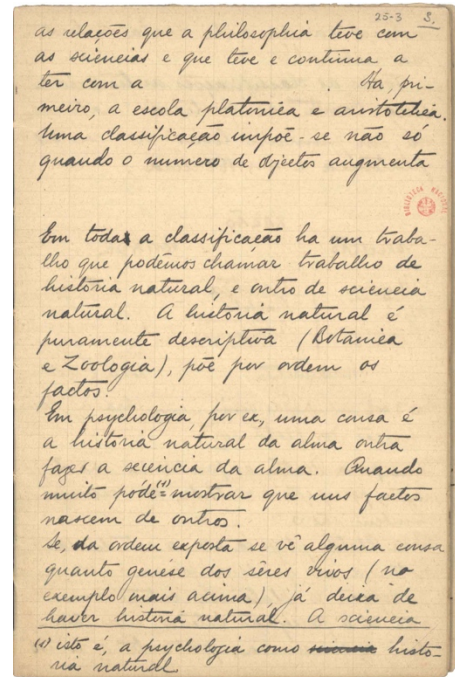 25-3 S.
as relações que a philosophia teve com
as sciencias e que teve e continua a
ter com a Ha, pri-
meiro, a escola platonica e aristotelica.
Uma classificação impõe-se não só
quando o numero de objectos augmenta
BIBLIOTECA NACIONAL
Em toda a classificação ha um traba-
lho que podêmos chamar trabalho de
historia natural, e outro de sciencia
natural. A historia natural é
puramente descriptiva (Botanica
e Zoologia), põe por ordem os
factos.
Em psychologia, por ex, uma cousa é
a historia natural da alma outra
fazer a sciencia da alma. Quando
muito póde(1) mostrar que uns factos
nascem de outros.
Se, da ordem exposta se vê alguma cousa
quanto genése dos sêres vivos (no
exemplo mais acima), já deixa de
haver historia natural. A sciencia
(1) isto é, a psychologia como sciencia histo-
ria natural